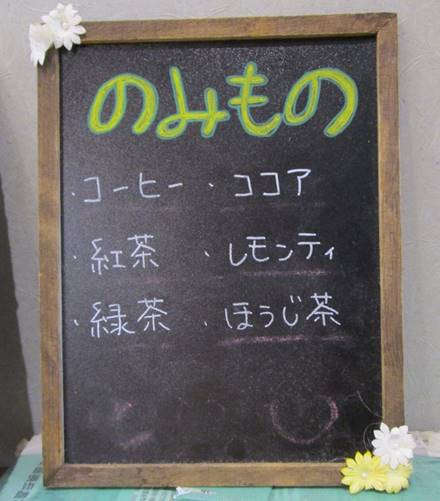 のみもの
・コーヒー ・ココア
・紅茶 ・レモンティ
・緑茶 ・ほうじ茶